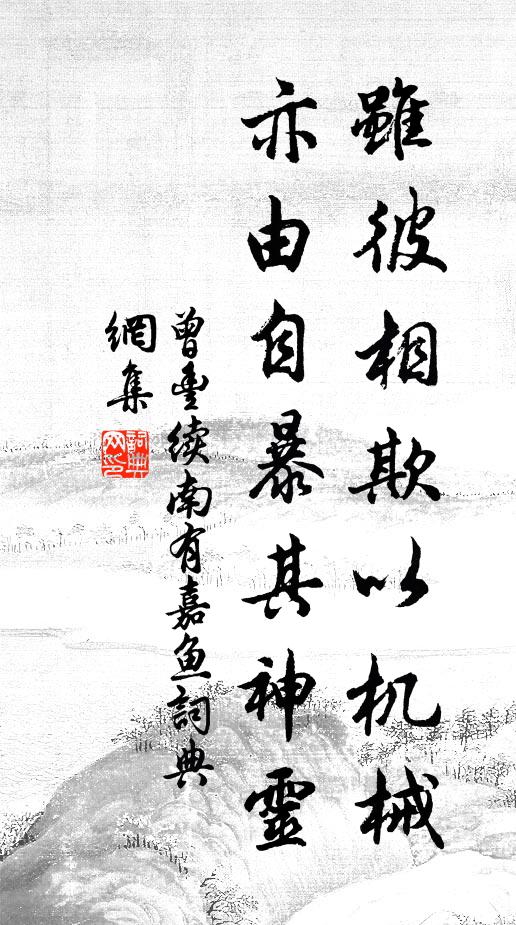 雖彼相欺以机械
亦由自暴其神靈
曾豊续南有嘉鱼詞典
網集
詞典
网印